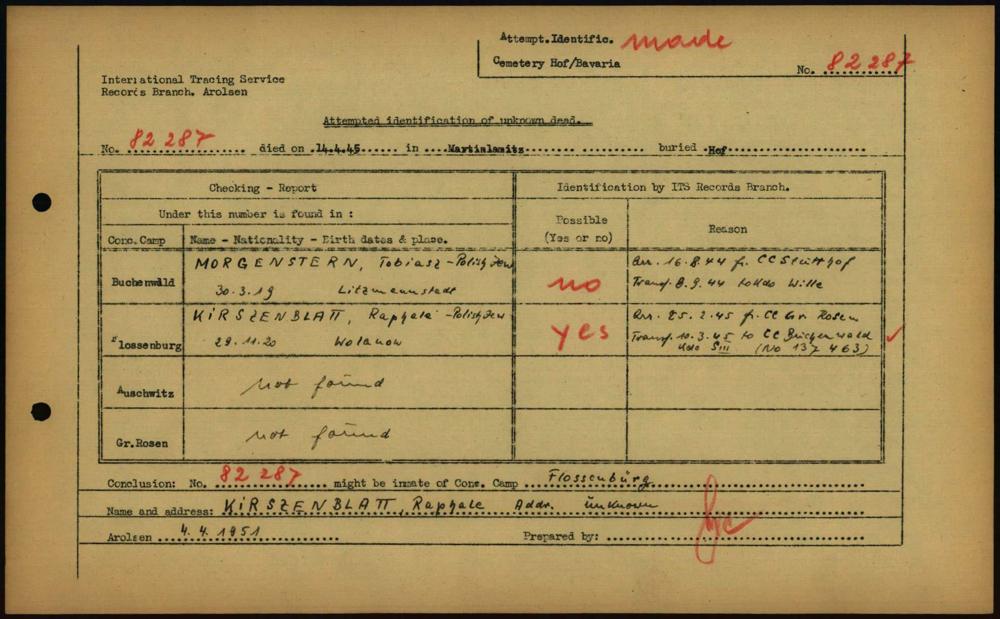 Attempt. Identific. made
Cemetery Hof/Bavaria
No. 82 287
International Tracing Service
Records Branch. Arolsen
Attempted identification of unknown dead.
No. 82 287 died on 14.4.45 in Martinlamitz buried Hof
Checking - Report
Identification by ITS Records Branch.
Under this number is found in :
Possible
(Yes or no)
Reason
Conc. Camp
Name - Nationality - Birth dates & place.
Buchenwald
MORGENSTERN, Tobiasz - Polish Jew
30.3.19 Litzmannstadt
no
Arr. 16.8.44 f. CC Stutthof
Transf. 8.9.44 to Kdo Wille
Flossenburg
KIRSZENBLATT, Raphale - Polish Jew
29.11.20 Wolanow
yes
Arr. 25.2.45 f. CC Gr. Rosen
Transf. 10.3.45 to CC Buchenwald
Kdo SIII (No 137 463)
Auschwitz
not found
Gr. Rosen
not found
Conclusion: No. 82 287 might be inmate of Conc. Camp Flossenbürg
Name and address: KIRSZENBLATT, Raphale Addr. unknown
Arolsen 4.4.1951
Prepared by: